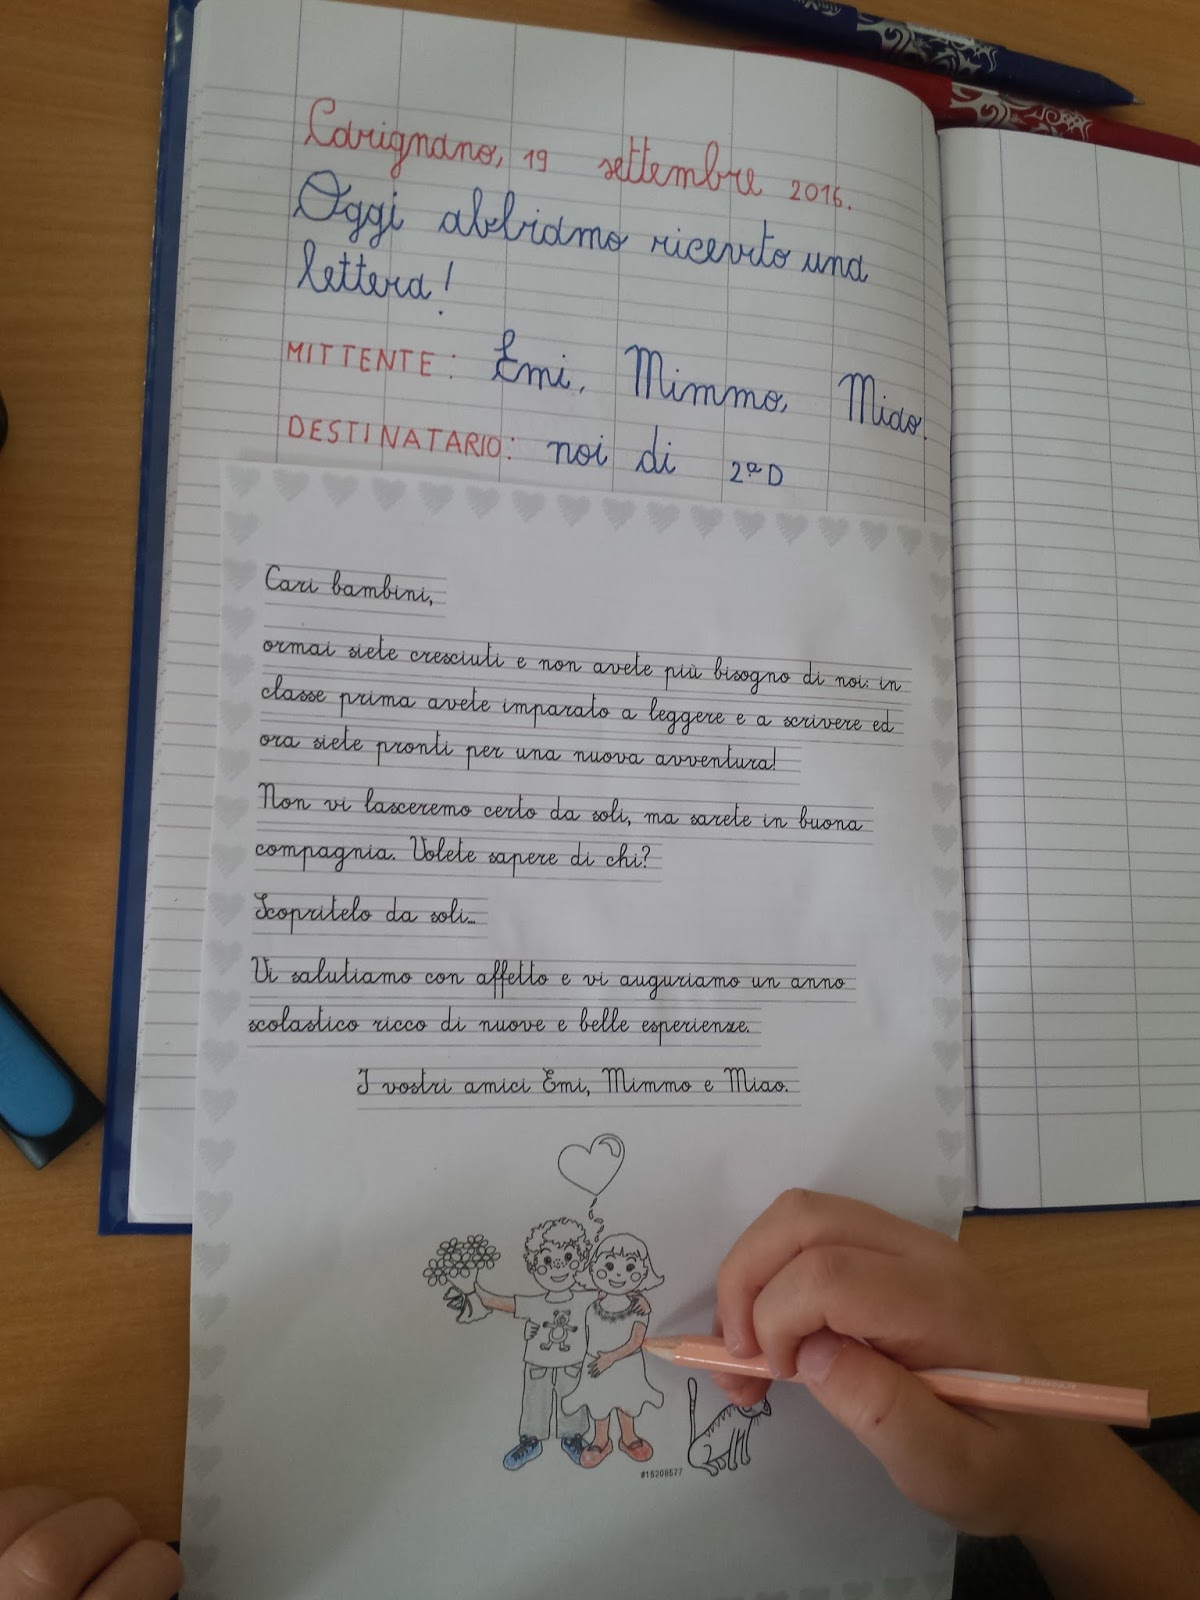 Carignano, 19 settembre 2016.
Oggi abbiamo ricevuto una
lettera!
MITTENTE: Emi, Mimmo, Miao.
DESTINATARIO: noi di 2ªD
Cari bambini,
ormai siete cresciuti e non avete più bisogno di noi: in
classe prima avete imparato a leggere e a scrivere ed
ora siete pronti per una nuova avventura!
Non vi lasceremo certo da soli, ma sarete in buona
compagnia. Volete sapere di chi?
Scopritelo da soli...
Vi salutiamo con affetto e vi auguriamo un anno
scolastico ricco di nuove e belle esperienze.
I vostri amici Emi, Mimmo e Miao.
#15208577